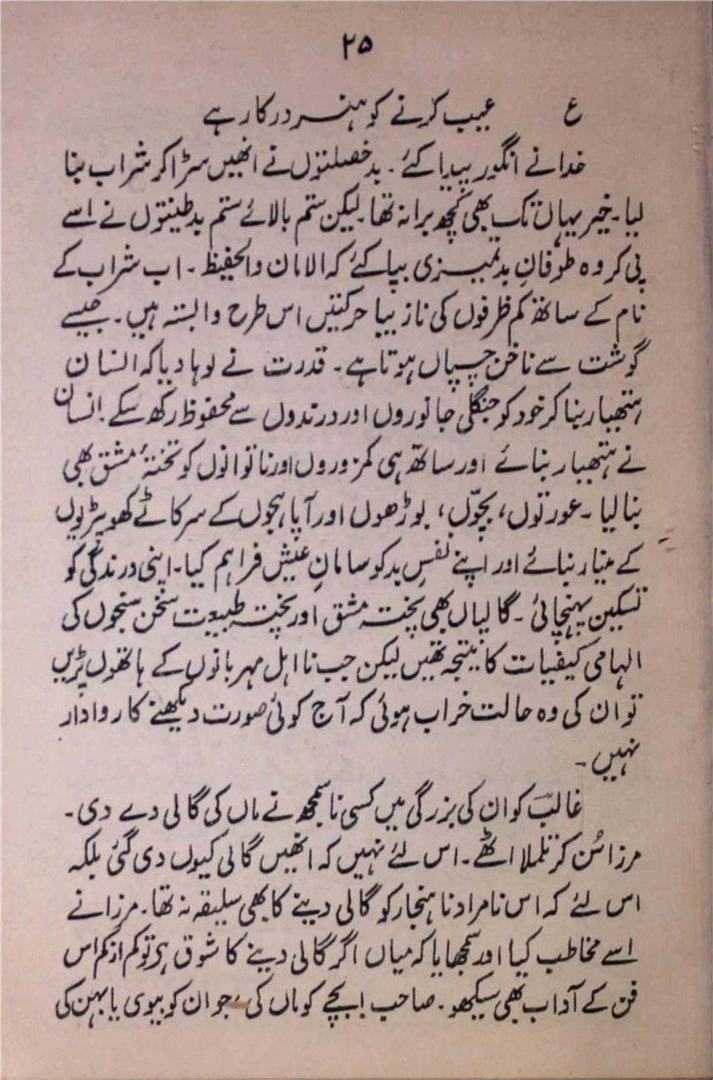 ۲۵
ع عیب کرنے کو ہنر درکار ہے
خدا نے انگور پیدا کئے ۔ بدخصلتوں نے انھیں سڑا کر شراب بنا
لیا۔ خیر یہاں تک بھی کچھ برا نہ تھا۔ لیکن ستم بالائے ستم بدطینتوں نے اسے
پی کر وہ طوفانِ بدتمیزی بپا کئے کہ الامان والحفیظ ۔ اب شراب کے
نام کے ساتھ کم ظرفوں کی نازیبا حرکتیں اس طرح وابستہ ہیں ۔ جیسے
گوشت سے ناخن چسپاں ہوتا ہے ۔ قدرت نے لوہا دیا کہ انسان
ہتھیار بنا کر خود کو جنگلی جانوروں اور درندوں سے محفوظ رکھ سکے ۔ انسان
نے ہتھیار بنائے اور ساتھ ہی کمزوروں اور ناتوانوں کو تختۂ مشق بھی
بنا لیا ۔ عورتوں، بچّوں، بوڑھوں اور آپاہجوں کے سر کاٹے کھوپڑیوں
کے مینار بنائے اور اپنے نفسِ بد کو سامانِ عیش فراہم کیا ۔ اپنی درندگی کو
تسکین پہنچائی ۔ گالیاں بھی پختہ مشق اور پختہ طبیعت سخن سنجوں کی
الہامی کیفیات کا نتیجہ تھیں لیکن جب نااہل مہربانوں کے ہاتھوں پڑیں
تو ان کی وہ حالت خراب ہوئی کہ آج کوئی صورت دیکھنے کا روادار
نہیں ۔
غالبؔ کو ان کی بزرگی میں کسی ناسمجھ نے ماں کی گالی دے دی ۔
مرزا سُن کر تلملا اٹھے ۔ اس لئے نہیں کہ انھیں گالی کیوں دی گئی بلکہ
اس لئے کہ اس نامراد ناہنجار کو گالی دینے کا بھی سلیقہ نہ تھا ۔ مرزا نے
اسے مخاطب کیا اور سمجھایا کہ میاں اگر گالی دینے کا شوق ہے تو کم از کم اس
فن کے آداب بھی سیکھو ۔ صاحب ! بچے کو ماں کی ، جوان کو بیوی یا بہن کی